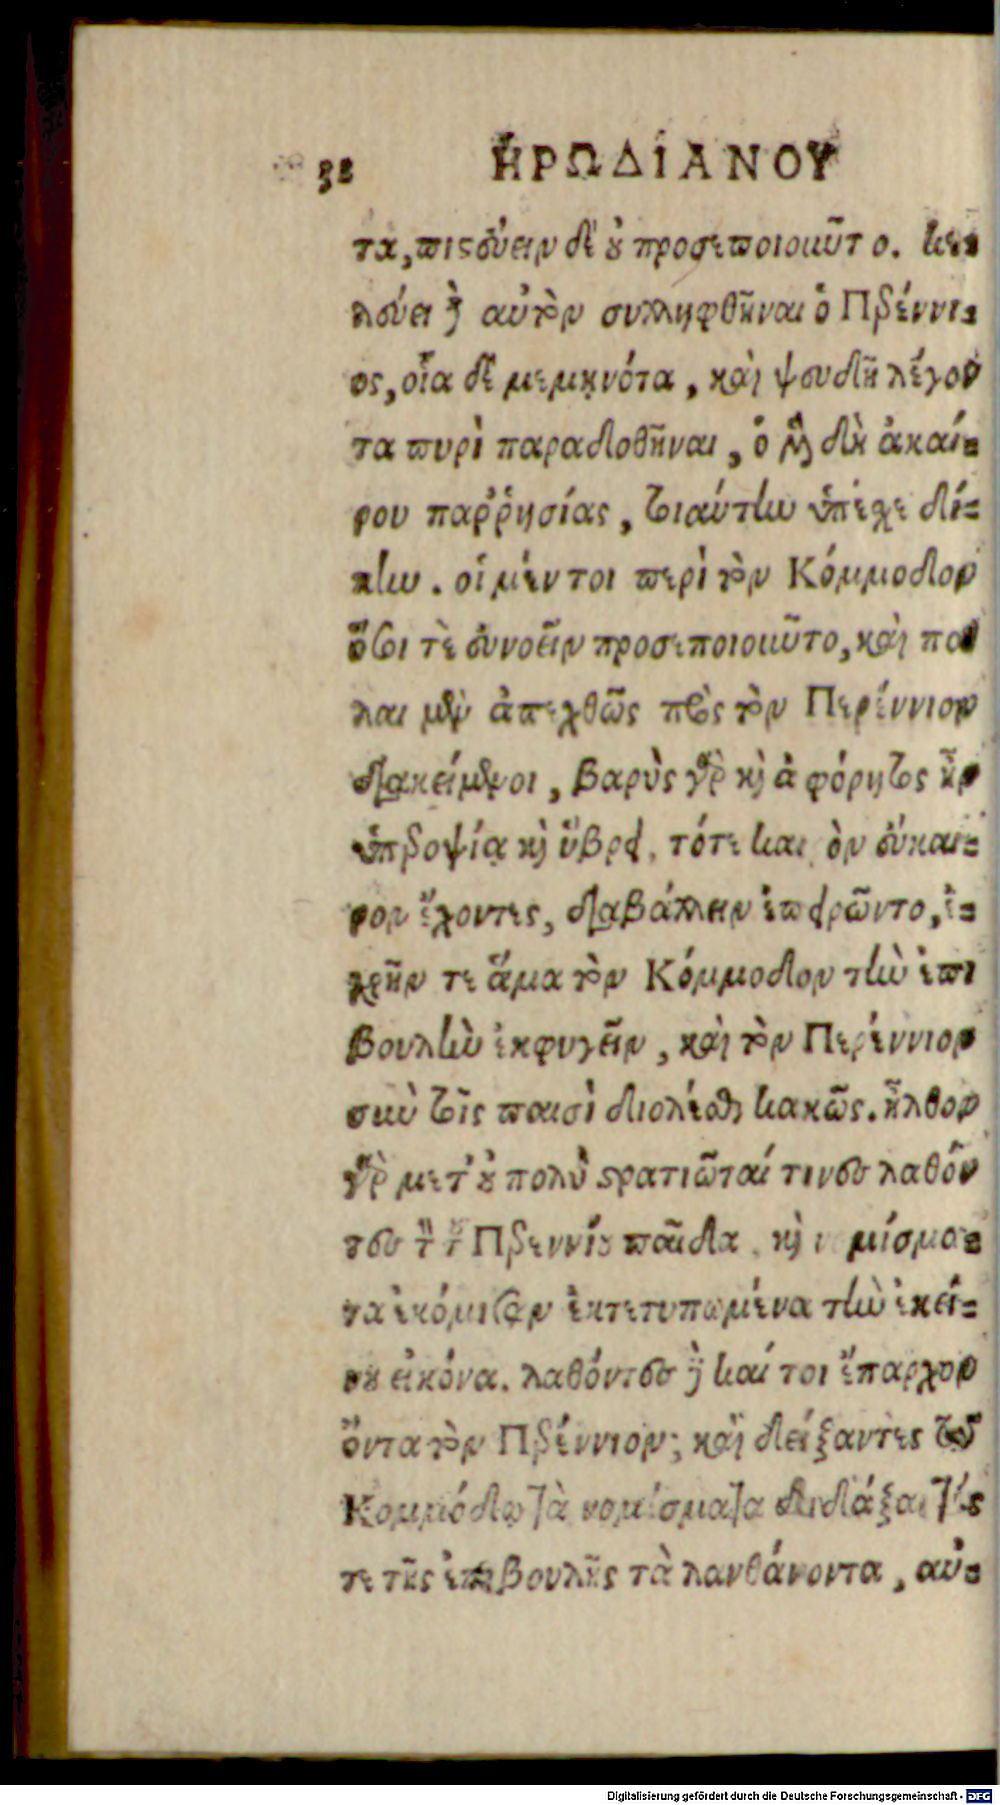 38 ΗΡΩΔΙΑΝΟΥ
τα, πιστεύειν δὲ οὐ προσεποιοῦντο. κε-
λεύει δὲ αὐτὸν συλληφθῆναι ὁ Περέννι-
ος, οἷα δὲ μεμηνότα, καὶ ψευδῆ λέγον
τα πυρὶ παραδοθῆναι, ὁ μὲν δὴ ἀκαί-
ρου παῤῥησίας, τοιαύτην ὑπέχε δί-
κην. οἱ μέντοι περὶ τὸν Κόμμοδον
ὅσοι τὲ εὐνοεῖν προσεποιοῦντο, καὶ πά
λαι μὲν ἀπεχθῶς πρὸς τὸν Περίννιον
διακείμενοι, βαρὺς γὰρ καὶ ἀφόρητος ἦν
ὑπεροψίᾳ καὶ ὕβρει, τότε καιρὸν εὔκαι-
ρον ἔχοντες, διαβάλλειν ἐπειρῶντο, ἐ-
χρῆν τε ἅμα τὸν Κόμμοδον τὴν ἐπι
βουλὴν ἐκφυγεῖν, καὶ τὸν Περέννιον
σὺν τοῖς παισὶ διολέσθαι κακῶς. ἦλθον
γὰρ μετ' οὐ πολὺ στρατιῶταί τινες λαθόν
τες τὸν τοῦ Περεννίου παῖδα, καὶ νομίσμα-
τα ἐκόμισαν ἐκτετυπωμένα τὴν ἐκεί-
νου εἰκόνα. λαθόντες δὲ καί τοι ἔπαρχον
ὄντα τὸν Περέννιον, καὶ δείξαντες τῷ
Κομμόδῳ τὰ νομίσματα διδάξαντές
τε τῆς ἐπιβουλῆς τὰ λανθάνοντα, αὐ-
Digitalisierung gefördert durch die Deutsche Forschungsgemeinschaft - DFG